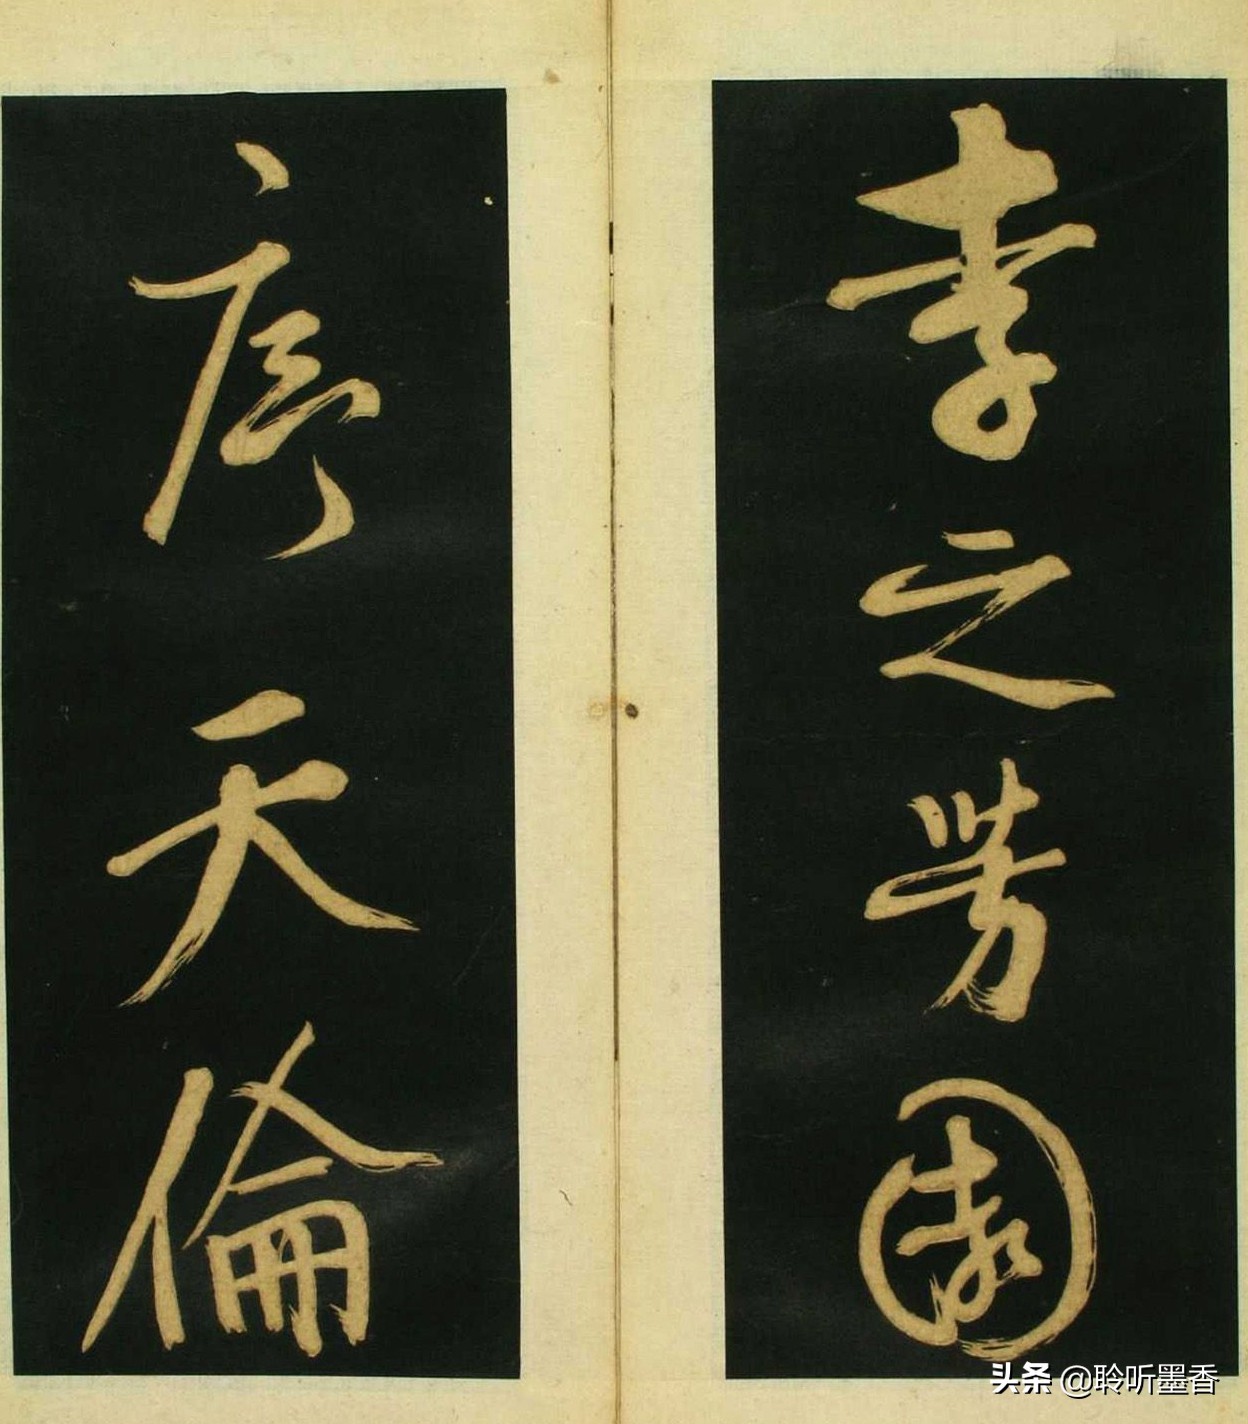 李之芳園
序天倫
头条 @聆听墨香